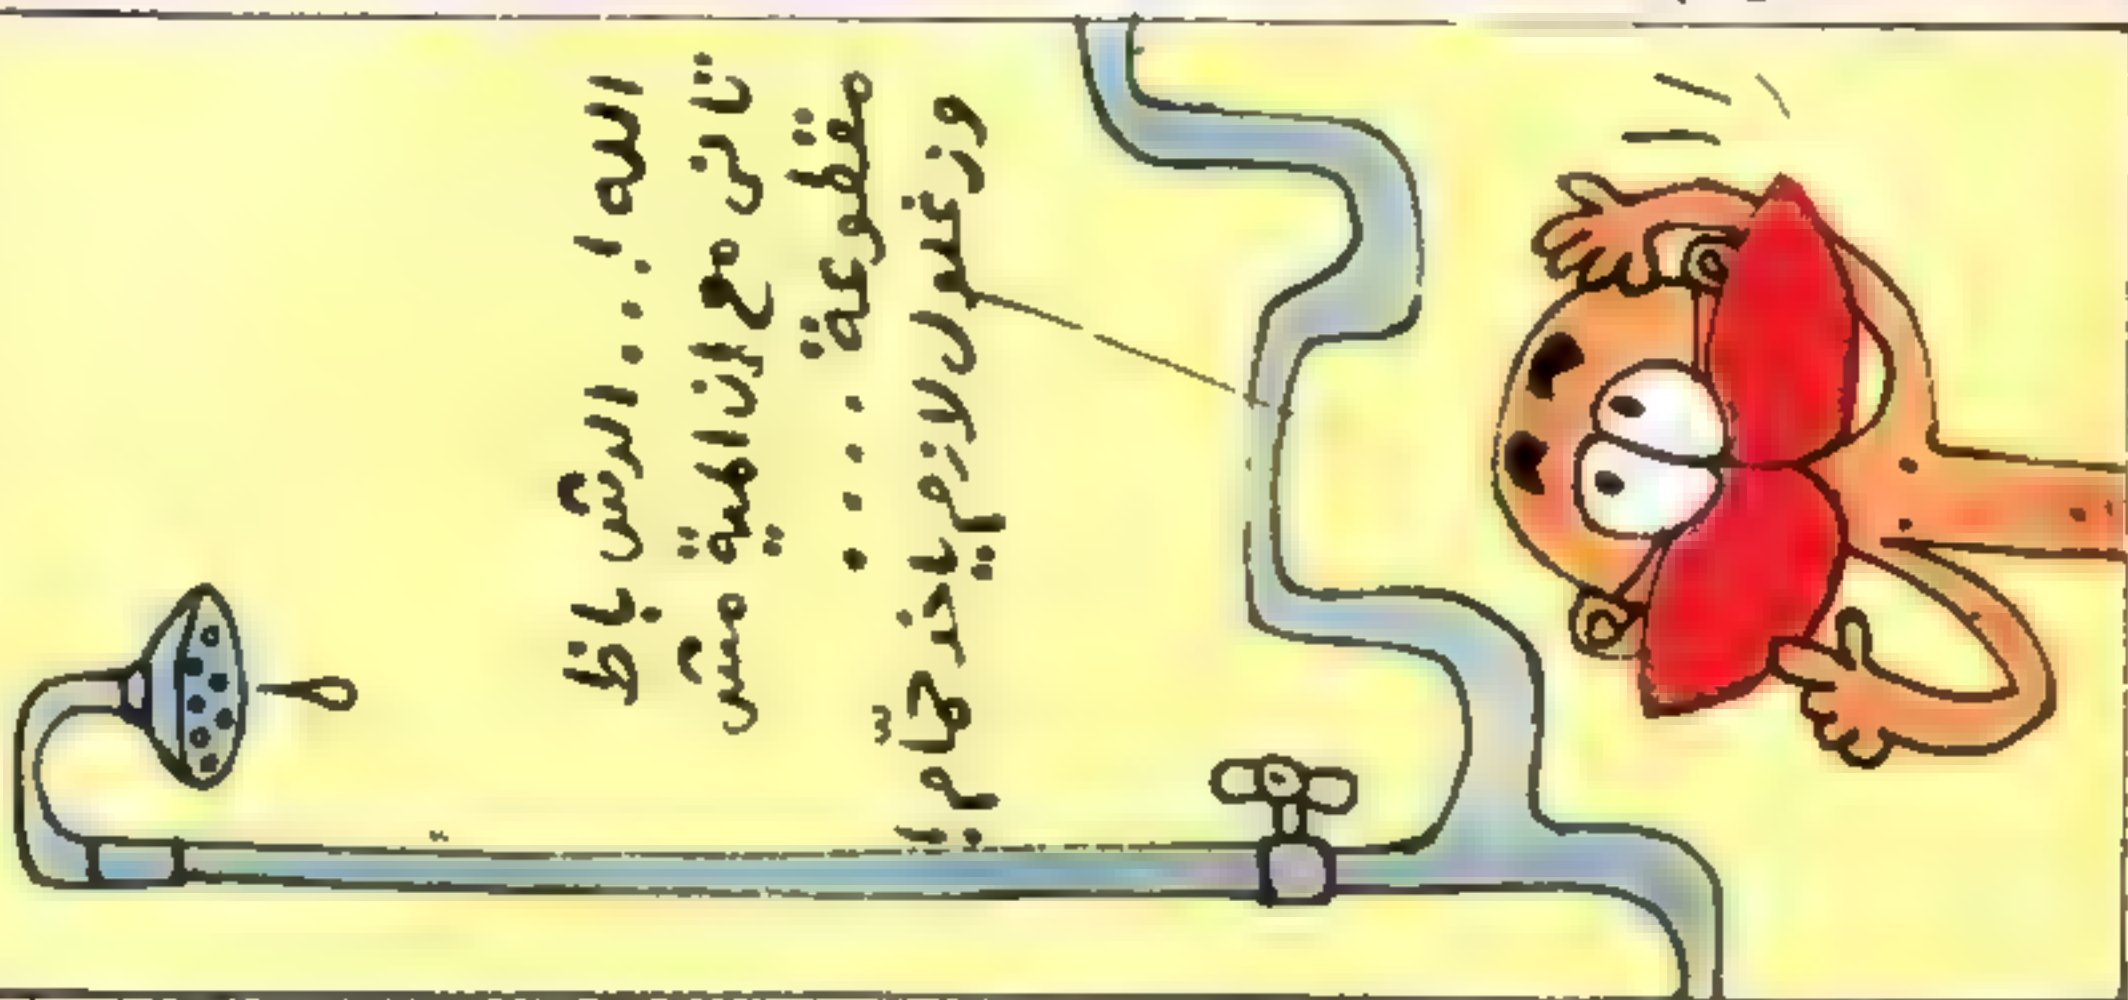 الله !.. الدش باظ
تانى مع ان المية مش
مقطوعة ....
وزغلول لازم ياخد حمّام !